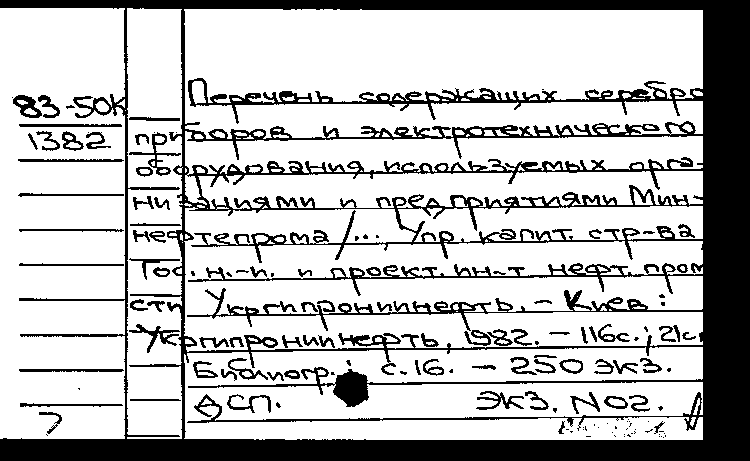 83-50к Перечень содержащих серебро
1382 приборов и электротехнического
оборудования, используемых орга-
низациями и предприятиями Мин-
нефтепрома /..., Упр. капит. стр-ва,
Гос. н.-и. и проект. ин-т нефт. пром
сти Укргипрониинефть. - Киев:
Укргипрониинефть, 1982. - 116с.; 21см
Библиогр.: с.16. - 250 экз.
ДСП. Экз. N02.